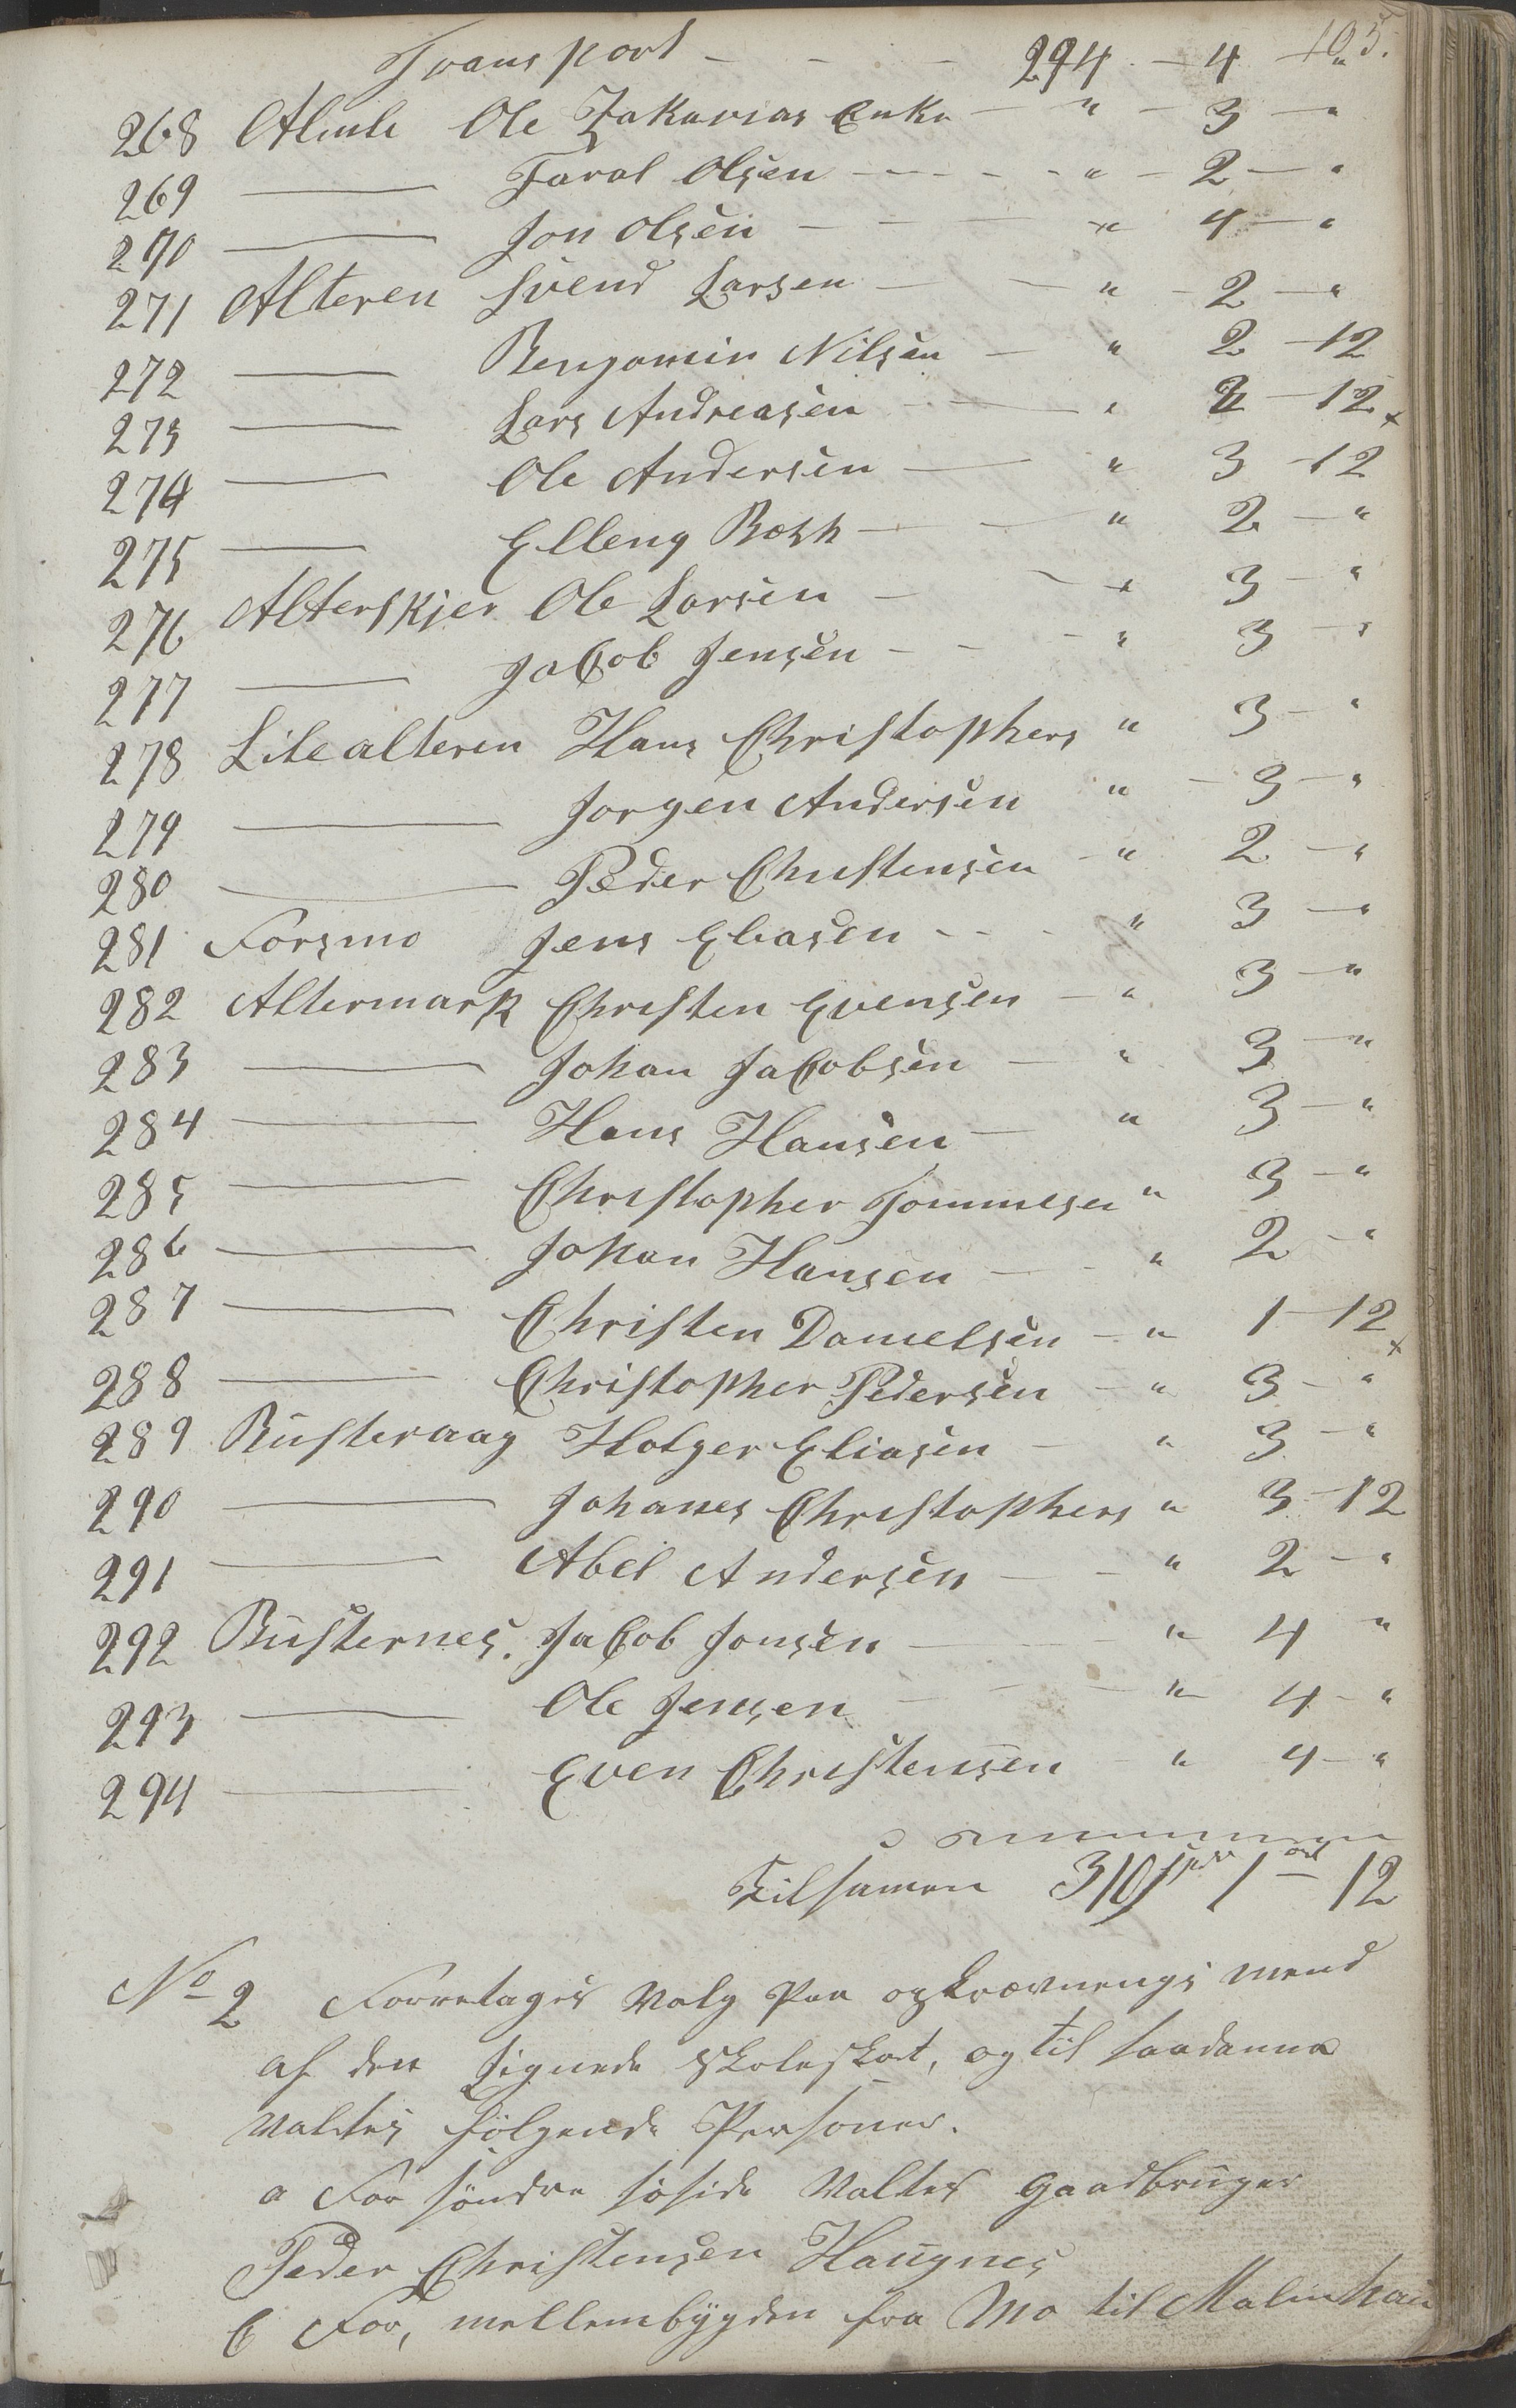 105.
Transport - - - 294 - 4 - "
268 Almli Ole Zakarias Enke - " - 3 - "
269 —— Taral Olsen - - - - " - 2 - "
270 —— Jon Olsen - - - " 4 - "
271 Alteren Svend Larsen - - " - 2 - "
272 —— Benjamin Nilsen - " 2 - 12
273 —— Lars Andreasen - - " 2 - 12 x
274 —— Ole Andersen - " 3 - 12
275 —— Elleng Bosh - - " 2 - "
276 Alterskjer Ole Larsen - - " 3 - "
277 —— Jacob Jensen - - - " 3 - "
278 Litealteren Hans Christophers " 3 - "
279 —— Jorgen Andersen " - 3 - "
280 —— Peder Christensen - " 2 - "
281 Forsmo Jens Eliasen - - - " 3 - "
282 Altermark Christen Evensen - " 3 - "
283 —— Johan Jacobsen - " 3 - "
284 —— Hans Hansen - " 3 - "
285 —— Christopher Tommesen " 3 - "
286 —— Johan Hansen - - " 2 - "
287 —— Christen Danielsen - " 1 - 12 x
288 —— Christopher Pedersen - " 3 - "
289 Busteraag Holger Eliasen - " 3 - "
290 —— Johanes Christophers " 3 - 12
291 —— Abel Andersen - - " 2 - "
292 Busternes. Jacob Jonsen - - - " 4 "
293 —— Ole Jensen - - - " 4 - "
294 —— Even Christensen - " 4 - "
Tilsamen 310 Spdr 1 ort - 12
No 2 Forretages Valg Paa opkrævnengs mend
af den lignede skoleskat, og til saadanne
Valtes følgende Personer.
a For søndre søside Valtes Gaardbruger
Peder Christensen Haugnes
b For, mellembygden fra Mo til